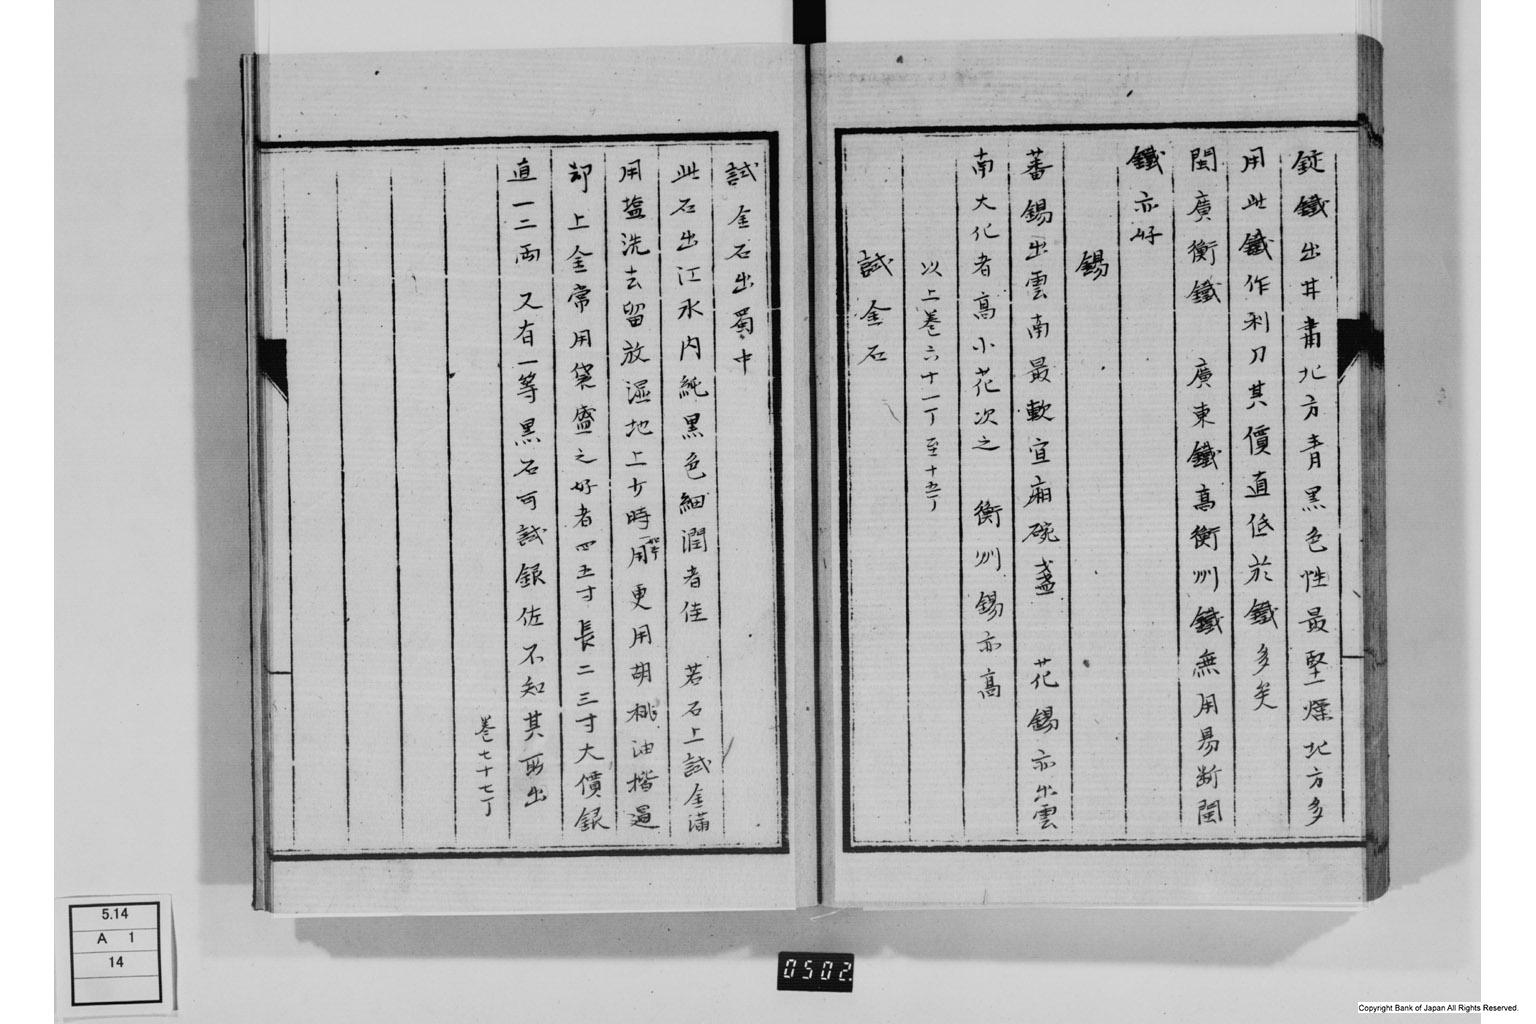 錠鐵出甘肅北方青黑色性最堅㷸北方多
用此鐵作利刀其價直低於鐵多矣
閩廣衡鐵　廣東鐵高衡州鐵無用易断閩
鐵亦好
錫
蕃錫出雲南最軟宣廂碗盞　花錫亦出雲
南大化者高小花次之　衡州錫亦高
以上巻六十一丁至十五丁
試金石
試金石出蜀中
此石出江水内純黑色細潤者佳　若石上試金満
用塩洗去留放湿地上少時用更用胡桃油揩過
却上金常用袋盛之好者四五寸長二三寸大價銀
直一二両　又有一等黒石可試銀佐不知其所出
巻七十七丁
5.14
A 1
14
0502
Copyright Bank of Japan All Rights Reserved.